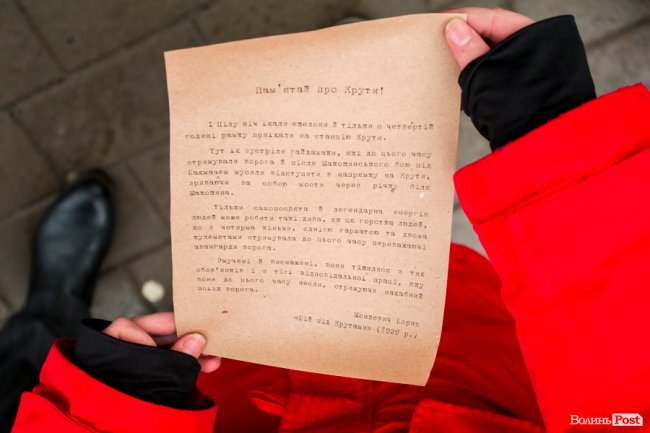 Пам'ятай про Крути!
І цілу ніч їхали ешелони й тільки о четвертій
годині ранку приїхали на станцію Крути.
Тут їх зустріли гайдамаки, які до цього часу
отримували ворога й після Макошинського бою під
Бахмачем мусили відступити в напрямку на Крути,
зриваючи за собою мости через річку біля
Макошина.
Тільки самопосвята й легендарна енергія
людей може робити такі дива, як ця горстка людей,
що з чотирма кіньми, однією гарматою та двома
кулеметами стримувала до цього часу переважаючі
авангарди ворога.
Змучені й виснажені, вони тішилися з тих
обов'язків і з тієї відповідальної праці, яку
вони до цього часу несли, стримуючи нахабний
похід ворога.
Монкевич Борис
«Бій під Крутами» (1929 р.)
ВолиньPost